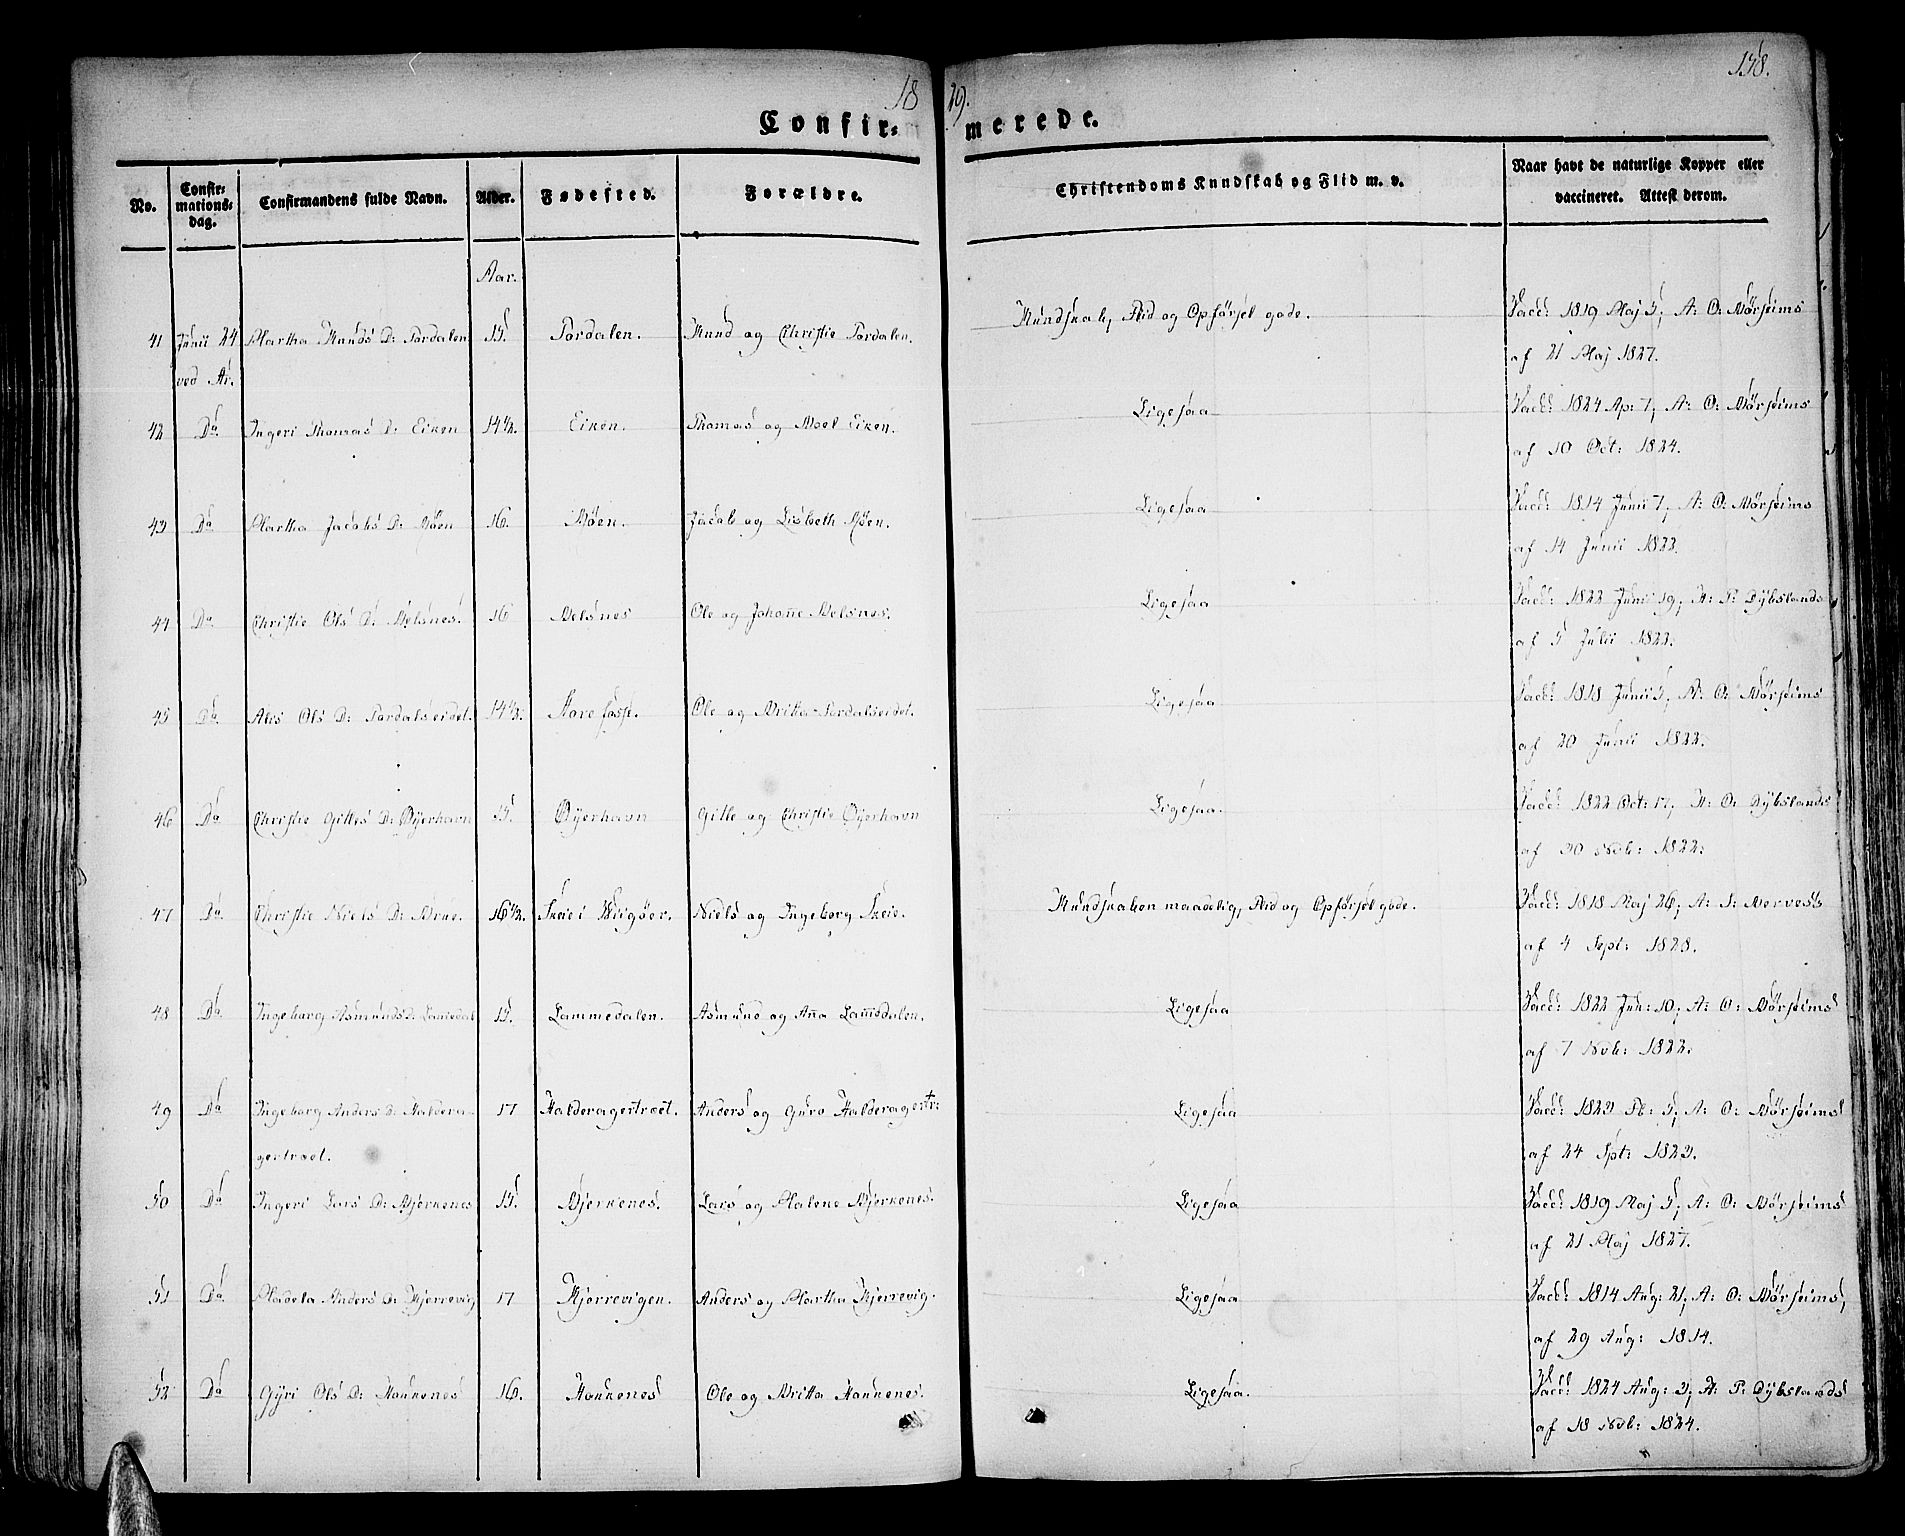 158.
18 29.
Confir= merede.
No. Confir= mations= dag. Confirmandens fulde Navn. Alder. Fødested. Forældre. Christendoms Kundskab og Flid m. v. Naar havt de naturlige Kopper eller vaccineret. Attest derom.
Aar.
41 Junii 24 Martha Knuds D: Tordalen 15. Tordalen. Knud og Christie Tordalen. Kundskab, Flid og Opførsel gode. Vacc: 1819 Maj 5, A: O: Mørseims
ved Ar. af 21 Maj 1827.
42 Do Ingeri Thomas D: Eiken 14½. Eiken. Thomas og Eiken. Ligesaa Vacc: 1824 Ap: 7, A: O: Mørseims
af 10 Oct: 1824.
43 Do Martha Jacobs D: Møen 16. Møen. Jacob og Lisbeth Møen. Ligesaa Vacc: 1814 Junii 7, A: O: Mørseims
af 14 Junii 1822.
44 Do Christie Ols D: Melsnes. 16 Melsnes Ole og Johanne Melsnes. Ligesaa Vacc: 1822 Junii 19, A: Dybslands
af 5 Julii 1822.
45 Do Ols D: Tordalseidet. 14½. Ole og Britta Tordalseidet. Ligesaa Vacc: 1818 Junii 5, A: O: Mørseims
af 20 Junii 1822.
46 Do Christie Gitles D: Øyerhavn 15. Øyerhavn Gitle og Christie Øyerhavn Ligesaa. Vacc: 1822 Oct: 17, A: O: Dybslands
af 30 Nob: 1822.
47 Do Christie Niels D: Brue. 16½. Skeie i Niels og Ingeborg Skeie. Kundskaben maadelig, Flid og Opførsel gode. Vacc: 1818 Maj 26, A:
af 4 Sept: 1828.
48 Do Ingeborg Asmunds D: 15. Lammedalen. Asmund og Anna Lammedalen. Ligesaa Vacc: 1822 Jun: 10, A: O: Mørseims
af 7 Nob: 1822.
49 Do Ingeborg Anders D: Haldera- 17 Halderagertræet. Anders og Guro Halderagertr: Ligesaa Vacc: 1823 5, A: O: Mørseims
gertræet. af 24 Spt: 1823.
50 Do Ingeri Lars D: Bjerkenes 15. Bjerkenes. Lars og Malene Bjerkenes. Ligesaa Vacc: 1819 Maj 5, A: O: Mørseims
af 21 Maj 1827.
51 Do Anders D: Kjerrevig 17 Kjerrevigen. Anders og Martha Kjerrevig. Ligesaa Vacc: 1814 Aug: 21, A: O: Mørseims,
af 29 Aug: 1814.
52 Do Gyri Ols D: Haukenes 16. Haukenes Ole og Britta Haukenes. Ligesaa. Vacc: 1824 Aug: 3, Dybslands
af 18 Nob: 1824.